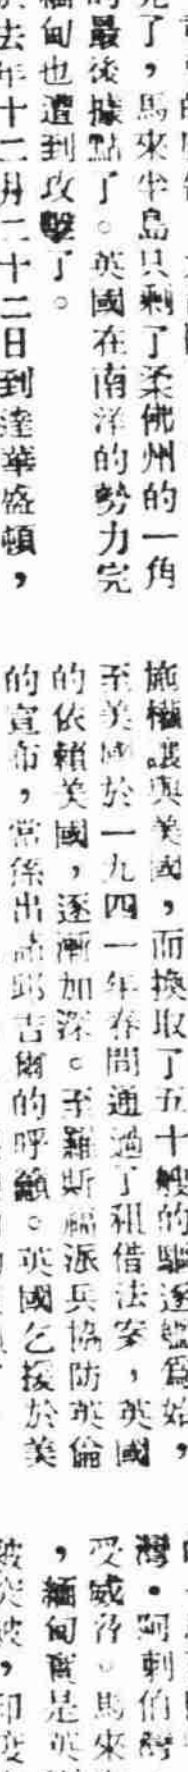 了，馬來半島只剩了柔佛州的一角
的最後據點了。英國在南洋的勢力完
緬甸也遭到攻擊了。
去年十二月二十二日到達華盛頓，
施權讓與美國，而換取了五十艘的驅逐艦爲始，
至美國於一九四一年春間通過了租借法案，英國
的依賴美國，逐漸加深。至羅斯福派兵協防英倫
的宣布，常係出諸邱吉爾的呼籲。英國乞援於美
灣·阿剌伯灣
受威脅。馬來
，緬甸實是英
被突破，印度